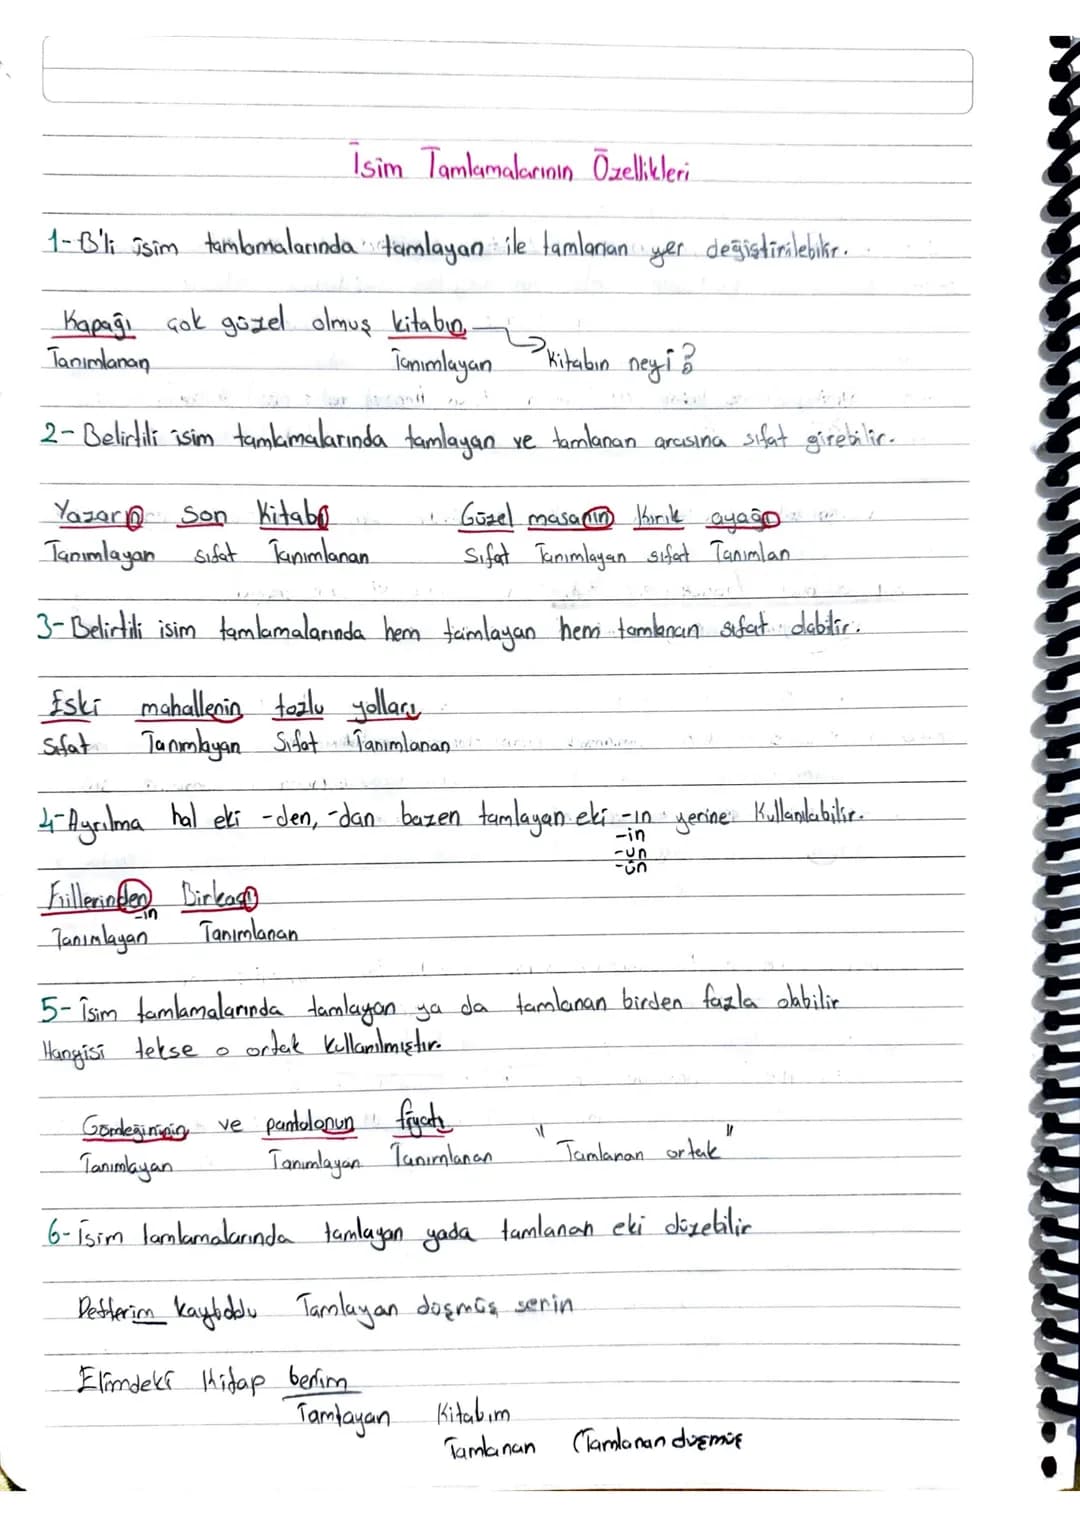 İsim Tamlamalarının Özellikleri
1- B'li isim tamlamalarında tamlayan ile tamlanan yer değiştirilebilir.
Kapağı çok güzel olmuş kitabın
Tanımlanan Tanımlayan Kitabın neyi?
2- Belirtili isim tamlamalarında tamlayan ve tamlanan arasına sıfat girebilir.
Yazarın Son Kitabı Güzel masanın Kırık ayağı
Tanımlayan sıfat Tanımlanan Sıfat Tanımlayan sıfat Tanımlan
3- Belirtili isim tamlamalarında hem tamlayan hem tamlanan sıfat olabilir.
Eski mahallenin tozlu yolları
Sıfat Tanımlayan Sıfat Tanımlanan
4- Ayrılma hal eki -den, -dan bazen tamlayan eki -ın yerine Kullanılabilir.
-in
-un
-ün
Fiillerinden Birkaçı
-in
Tanımlayan Tanımlanan
5- İsim tamlamalarında tamlayan ya da tamlanan birden fazla olabilir
Hangisi tekse o ortak kullanılmıştır.
Gömleğininin ve pantolonun fiyatı
Tanımlayan Tanımlayan Tanımlanan "Tamlanan ortak"
6- İsim tamlamalarında tamlayan yada tamlanan eki düzebilir
Defterim kayboldu Tamlayan düşmüş senin
Elimdeki Kitap benim
Tamlayan Kitabım
Tamlanan (Tamlanan düşmüş